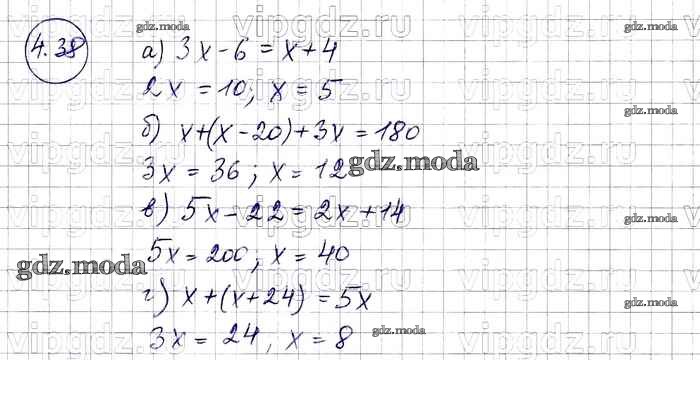 4.38
а) 3x - 6 = x + 4
2x = 10; x = 5
б) x + (x - 20) + 3x = 180
3x = 36; x = 12
в) 5x - 22 = 2x + 14
5x = 200; x = 40
г) x + (x + 24) = 5x
3x = 24, x = 8
gdz.moda
gdz.moda
gdz.moda
gdz.moda
gdz.moda
gdz.moda
gdz.moda
gdz.moda
vipgdz.ru
vipgdz.ru
vipgdz.ru